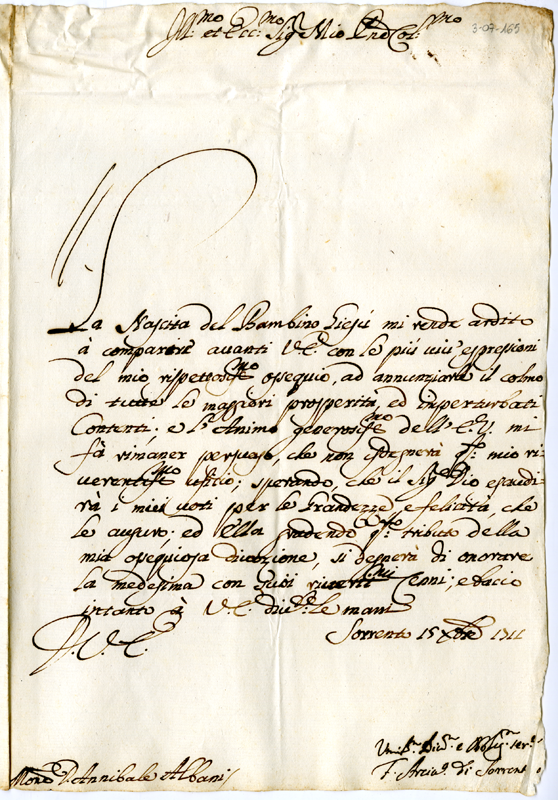 Ill.mo et Ecc.mo Sig.r Mio P.ne Col.mo
3-07-165
La Nascita del Bambino Giesù mi rende ardito
à comparire avanti V.E. con le più vive espressioni
del mio rispettosis.mo ossequio, ad annunziarle il colmo
di tutte le maggiori prosperità, ed imperturbati
Contenti; e l'Animo generosiss.mo dell'E.V. mi
fà rimaner persuaso, che non isdegnerà q.to mio ri-
verentiss.mo uficio; sperando, che il Sig.r Dio esaudi-
rà i miei voti per le Grandezze, e felicità, che
le auguro; ed Ella q.to tributo della
mia ossequiosa divozione, si degnerà di onorare
la medesima con suoi riveriti.mi Cenni; e bacio
intanto à V.E. le mani
Sorrento 15 Xbre 1711
D.V.E.
Umil.mo Div.mo e Oblig.mo ser.re
F. Arciv.o di Sorrento
Mons.r D. Annibale Albani